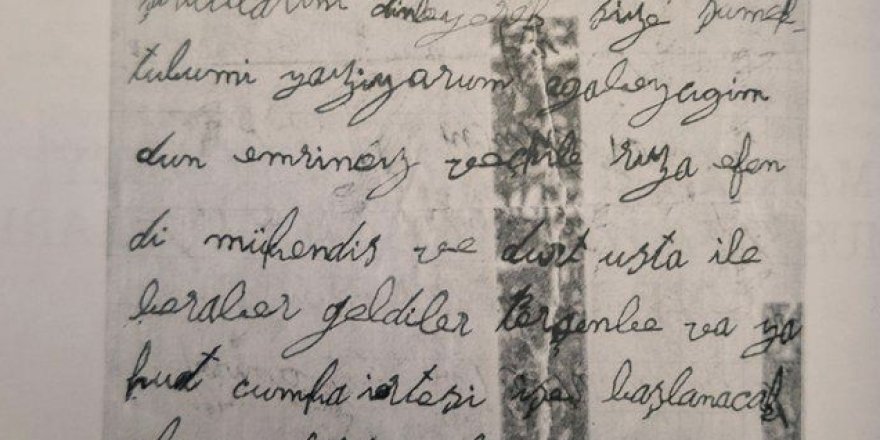 dinleyerek size şumek-
tubumi yaziyarum agabeyagim
dun emrineiz veçhile rıza efen
di mühendis ve durt usta ile
beraber geldiler perşenbe va ya
hut cumha irtesi işe başlanacak